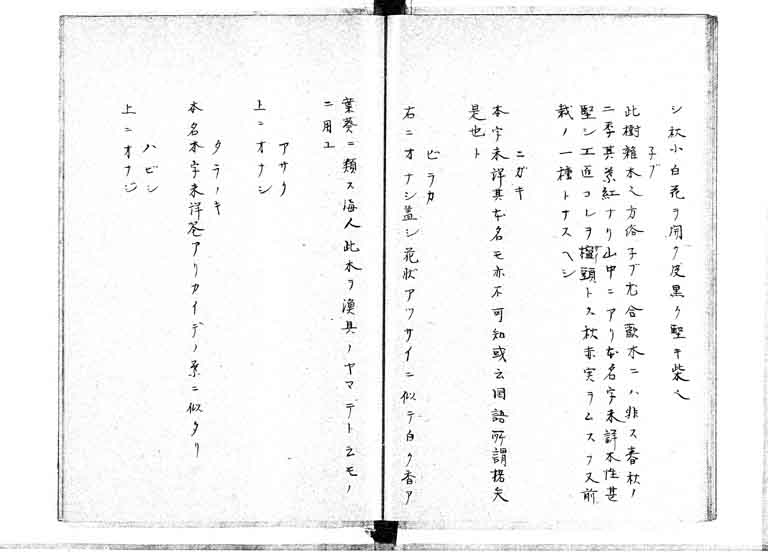 シ秋小白花ヲ開ク皮黒ク堅キ柴也
子ブ
此樹雑木也方俗子ブ尤合歡木ニハ非ス春秋ノ
二季其葉紅ナリ山中ニアリ本名字未詳木性甚
堅シ工匠コレヲ 頭トス秋赤実ラムスフス前
栽ノ一種トナスヘシ
ニガキ
本字未詳其本名モ亦不可知或云国語所謂楛矢
是也ト
ビラカ
右ニオナシ蓋シ花状アツサイニ似テ白ク香ア
葉葵ニ類ス海人此木ヲ漁具ノヤマデト云モノ
ニ用ユ
アサク
上ニオナシ
タラノキ
本名本字未詳 アリカイデノ葉ニ似タリ
ハビシ
上ニオナジ